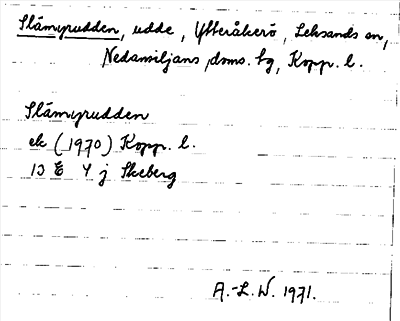 Slämyrudden, udde, Ytteråkerö, Leksands sn,
Nedansiljans doms. hg, Kopp. l.
Slämyrudden
ek (1970) Kopp. l.
13 E 4 j Skeberg
A.-L. W. 1971.